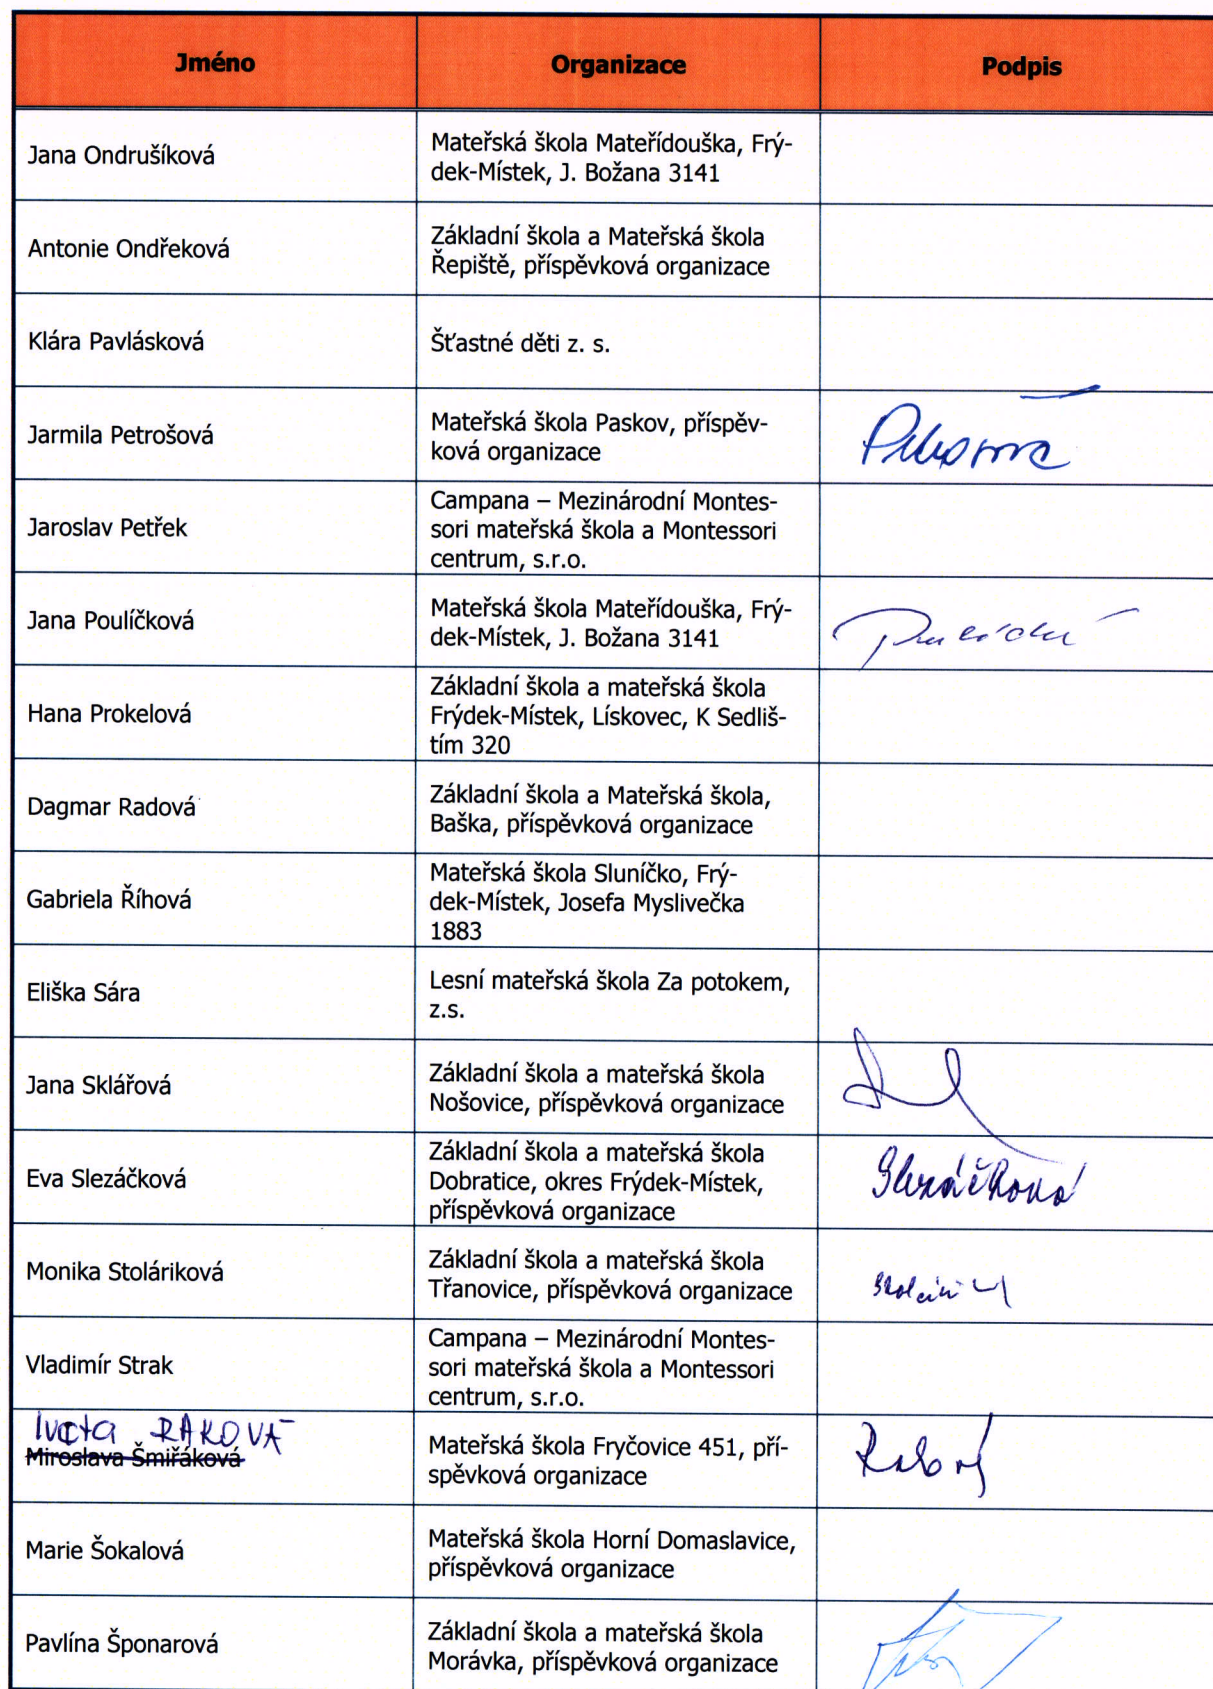 Jméno Organizace Podpis
Jana Ondrušíková
Mateřská škola Mateřídouška, Frý-
dek-Místek, J. Božana 3141
Antonie Ondřeková
Základní škola a Mateřská škola
Řepiště, příspěvková organizace
Klára Pavlásková
Šťastné děti z. s.
Jarmila Petrošová
Mateřská škola Paskov, příspěv-
ková organizace
Jaroslav Petřek
Campana – Mezinárodní Montes-
sori mateřská škola a Montessori
centrum, s.r.o.
Jana Poulíčková
Mateřská škola Mateřídouška, Frý-
dek-Místek, J. Božana 3141
Hana Prokelová
Základní škola a mateřská škola
Frýdek-Místek, Lískovec, K Sedliš-
tím 320
Dagmar Radová
Základní škola a Mateřská škola,
Baška, příspěvková organizace
Gabriela Říhová
Mateřská škola Sluníčko, Frý-
dek-Místek, Josefa Myslivečka
1883
Eliška Sára
Lesní mateřská škola Za potokem,
z.s.
Jana Sklářová
Základní škola a mateřská škola
Nošovice, příspěvková organizace
Eva Slezáčková
Základní škola a mateřská škola
Dobratice, okres Frýdek-Místek,
příspěvková organizace
Slezáčková
Monika Stoláriková
Základní škola a mateřská škola
Třanovice, příspěvková organizace
Vladimír Strak
Campana – Mezinárodní Montes-
sori mateřská škola a Montessori
centrum, s.r.o.
Iveta RAKOVÁ
Miroslava Šmiřáková
Mateřská škola Fryčovice 451, pří-
spěvková organizace
Marie Šokalová
Mateřská škola Horní Domaslavice,
příspěvková organizace
Pavlína Šponarová
Základní škola a mateřská škola
Morávka, příspěvková organizace